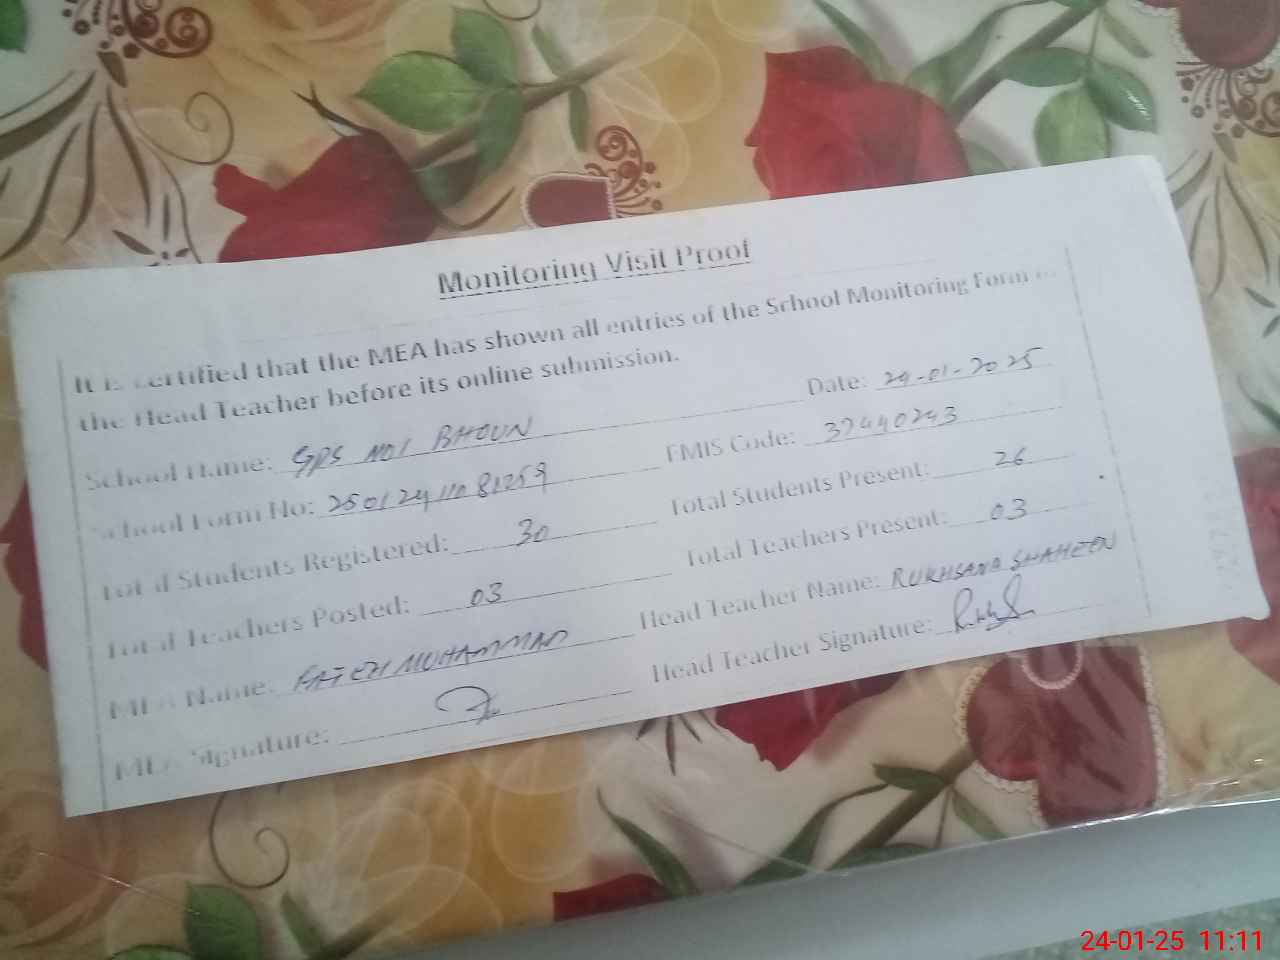 Monitoring Visit Proof
It is certified that the MEA has shown all entries of the School Monitoring Form to
the Head Teacher before its online submission.
Date: 24-01-2025
School Name: GPS NO1 BHOUN
EMIS Code: 37440243
School Form No:
Total Students Present: 26
Total Students Registered: 30
Total Teachers Present: 03
Total Teachers Posted: 03
Head Teacher Name: RUKHSANA SHAHEEN
MEA Name: FATEH MUHAMMAD
Head Teacher Signature:
MEA Signature:
24-01-25 11:11